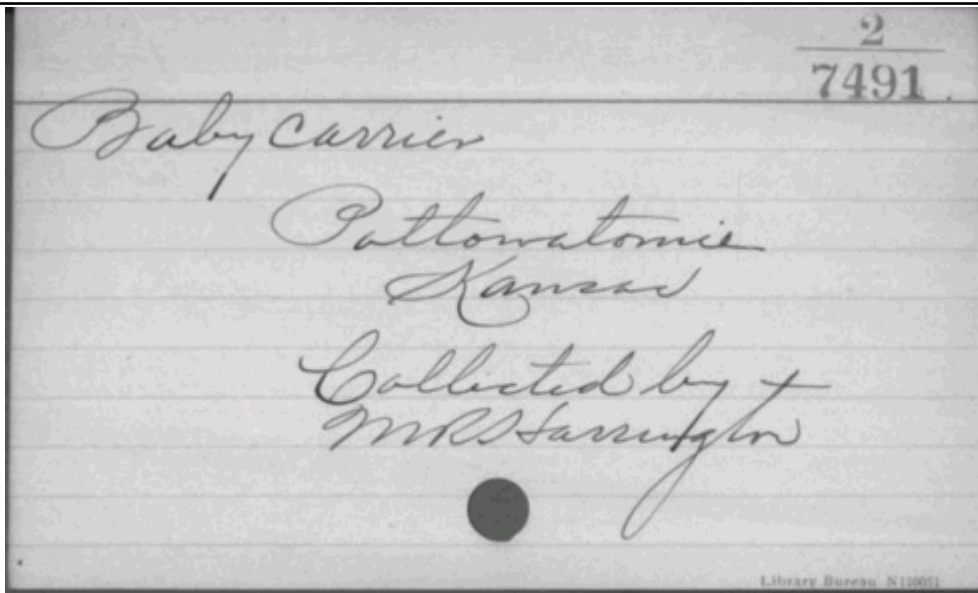 2
7491
Baby carrier
Pottowatomie
Kansas
Collected by
MRHarrington
Library Bureau N110051